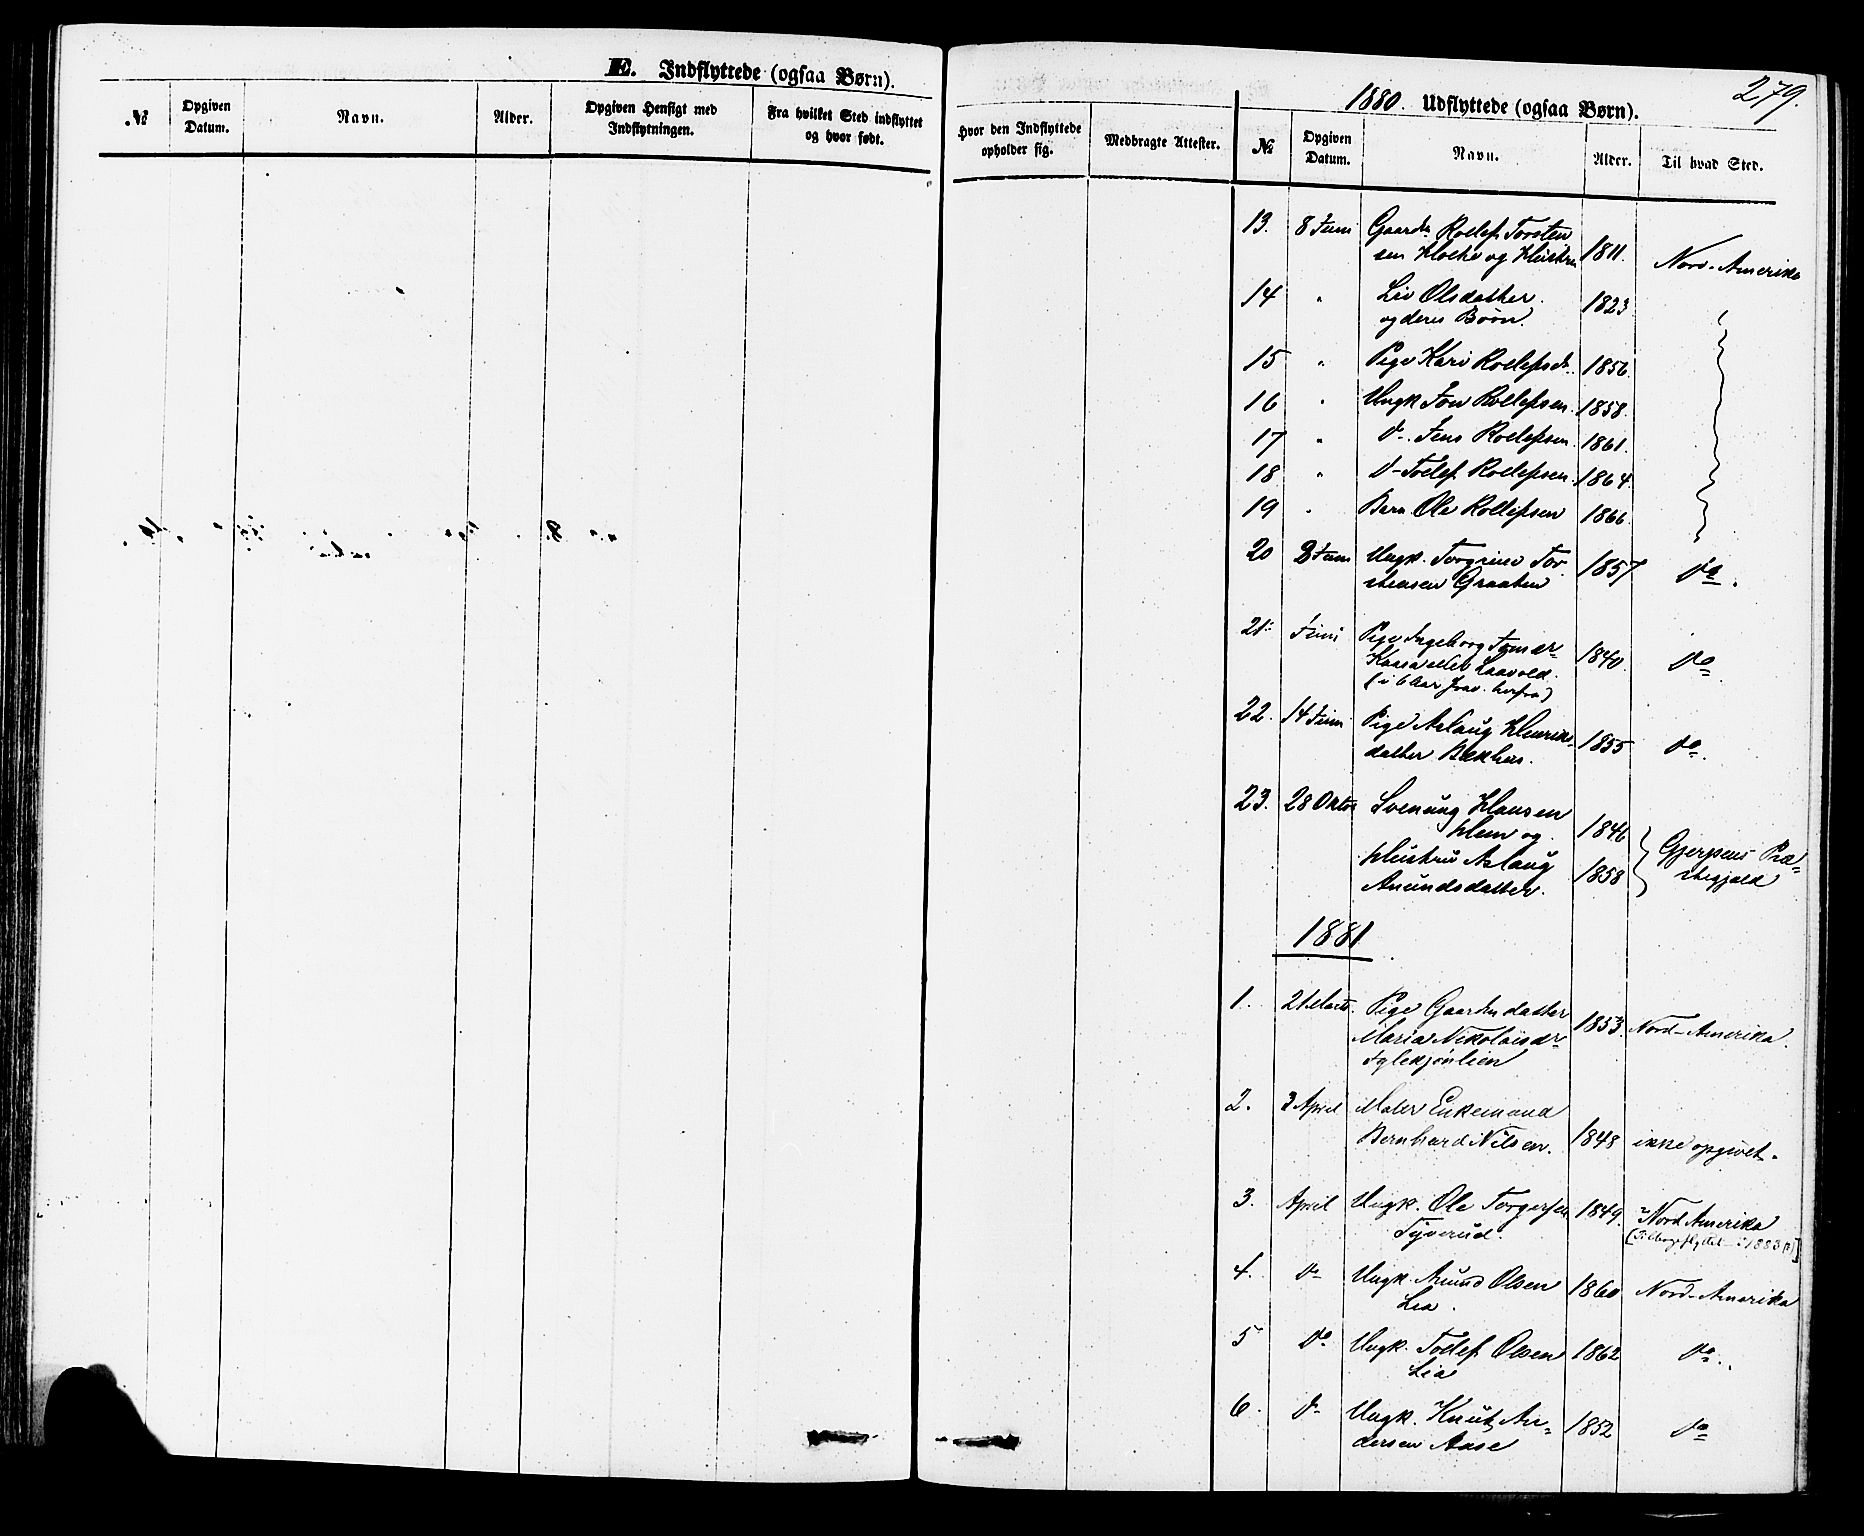 E. Indflyttede (ogsaa Børn).
№ Opgiven Datum. Navn. Alder. Opgiven Hensigt med Indflytningen. Fra hvilket Sted indflyttet og hvor født.
Hvor den Indflyttede opholder sig. Medbragte Attester.
279.
1880. Udflyttede (ogsaa Børn).
№ Opgiven Datum. Navn. Alder. Til hvad Sted.
13. 8 Juni Gaardm. Rollef Torsten
sen og Hustru 1811. Nord-Amerika
14 " Liv Olsdatter 1823
og deres Børn.
15 " Pige Kari Rollefsd. 1856.
16 " Ungk Jon Rollefsen 1858.
17 " do. Jens Rollefsen. 1861.
18 " do Tollef Rollefsen. 1864.
19 " Barn Ole Rollefsen 1866.
20 8 Juni Ungk. Torgrim Tor-
stensen Graaten 1857 do.
21. Juni Pige Ingeborg
eller Laavold. 1840. do
(i 6 Aar frav. herfra)
22. 14 Juni Pige Aslaug Henriks-
datter Bakhus. 1855 do.
23. 28 Oktbr Svenung Hansen
Hem og 1846
Hustru Aslaug
Anundsdatter. 1858 Gjerpens Præ-
stegjæld
1881
1. 21 Marts. Pige Gaardm. datter
Maria Nikolaisdr 1853. Nord-Amerika.
2. 3 April Maler Enkemand
Bernhard Nilsen. 1848 ikke opgivet.
3. April Ungk. Ole Torgersen 1849. Nord Amerika
Tyverud. (Tilbageflyttet i 1883)
4. do Ungk. Anund Olsen 1860 Nord-Amerika
Lia.
5 do. Ungk. Tollef Olsen 1862 do.
Lia
6. do Ungk. Knut An-
dersen Aase 1852 do